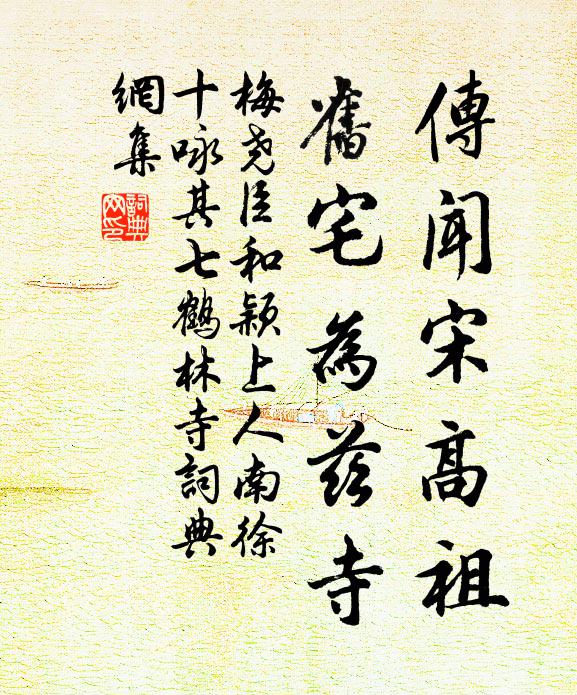 傳聞宋高祖
舊宅為茲寺
梅堯臣和穎上人南徐
十咏其七鶴林寺詞典
網集
詞典
网印